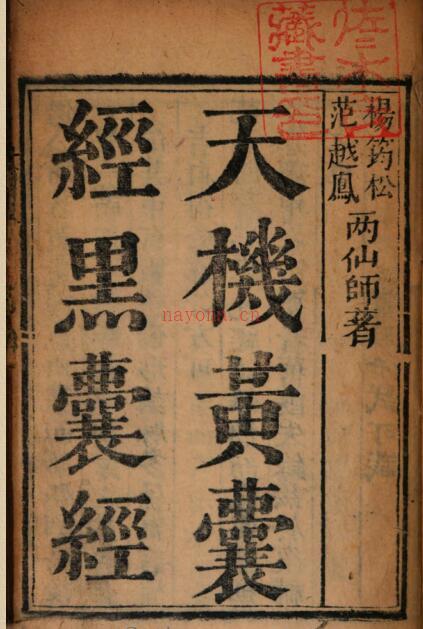 楊筠松
范越鳳
两仙師著
天機黃囊
經黑囊經
nayona.cn